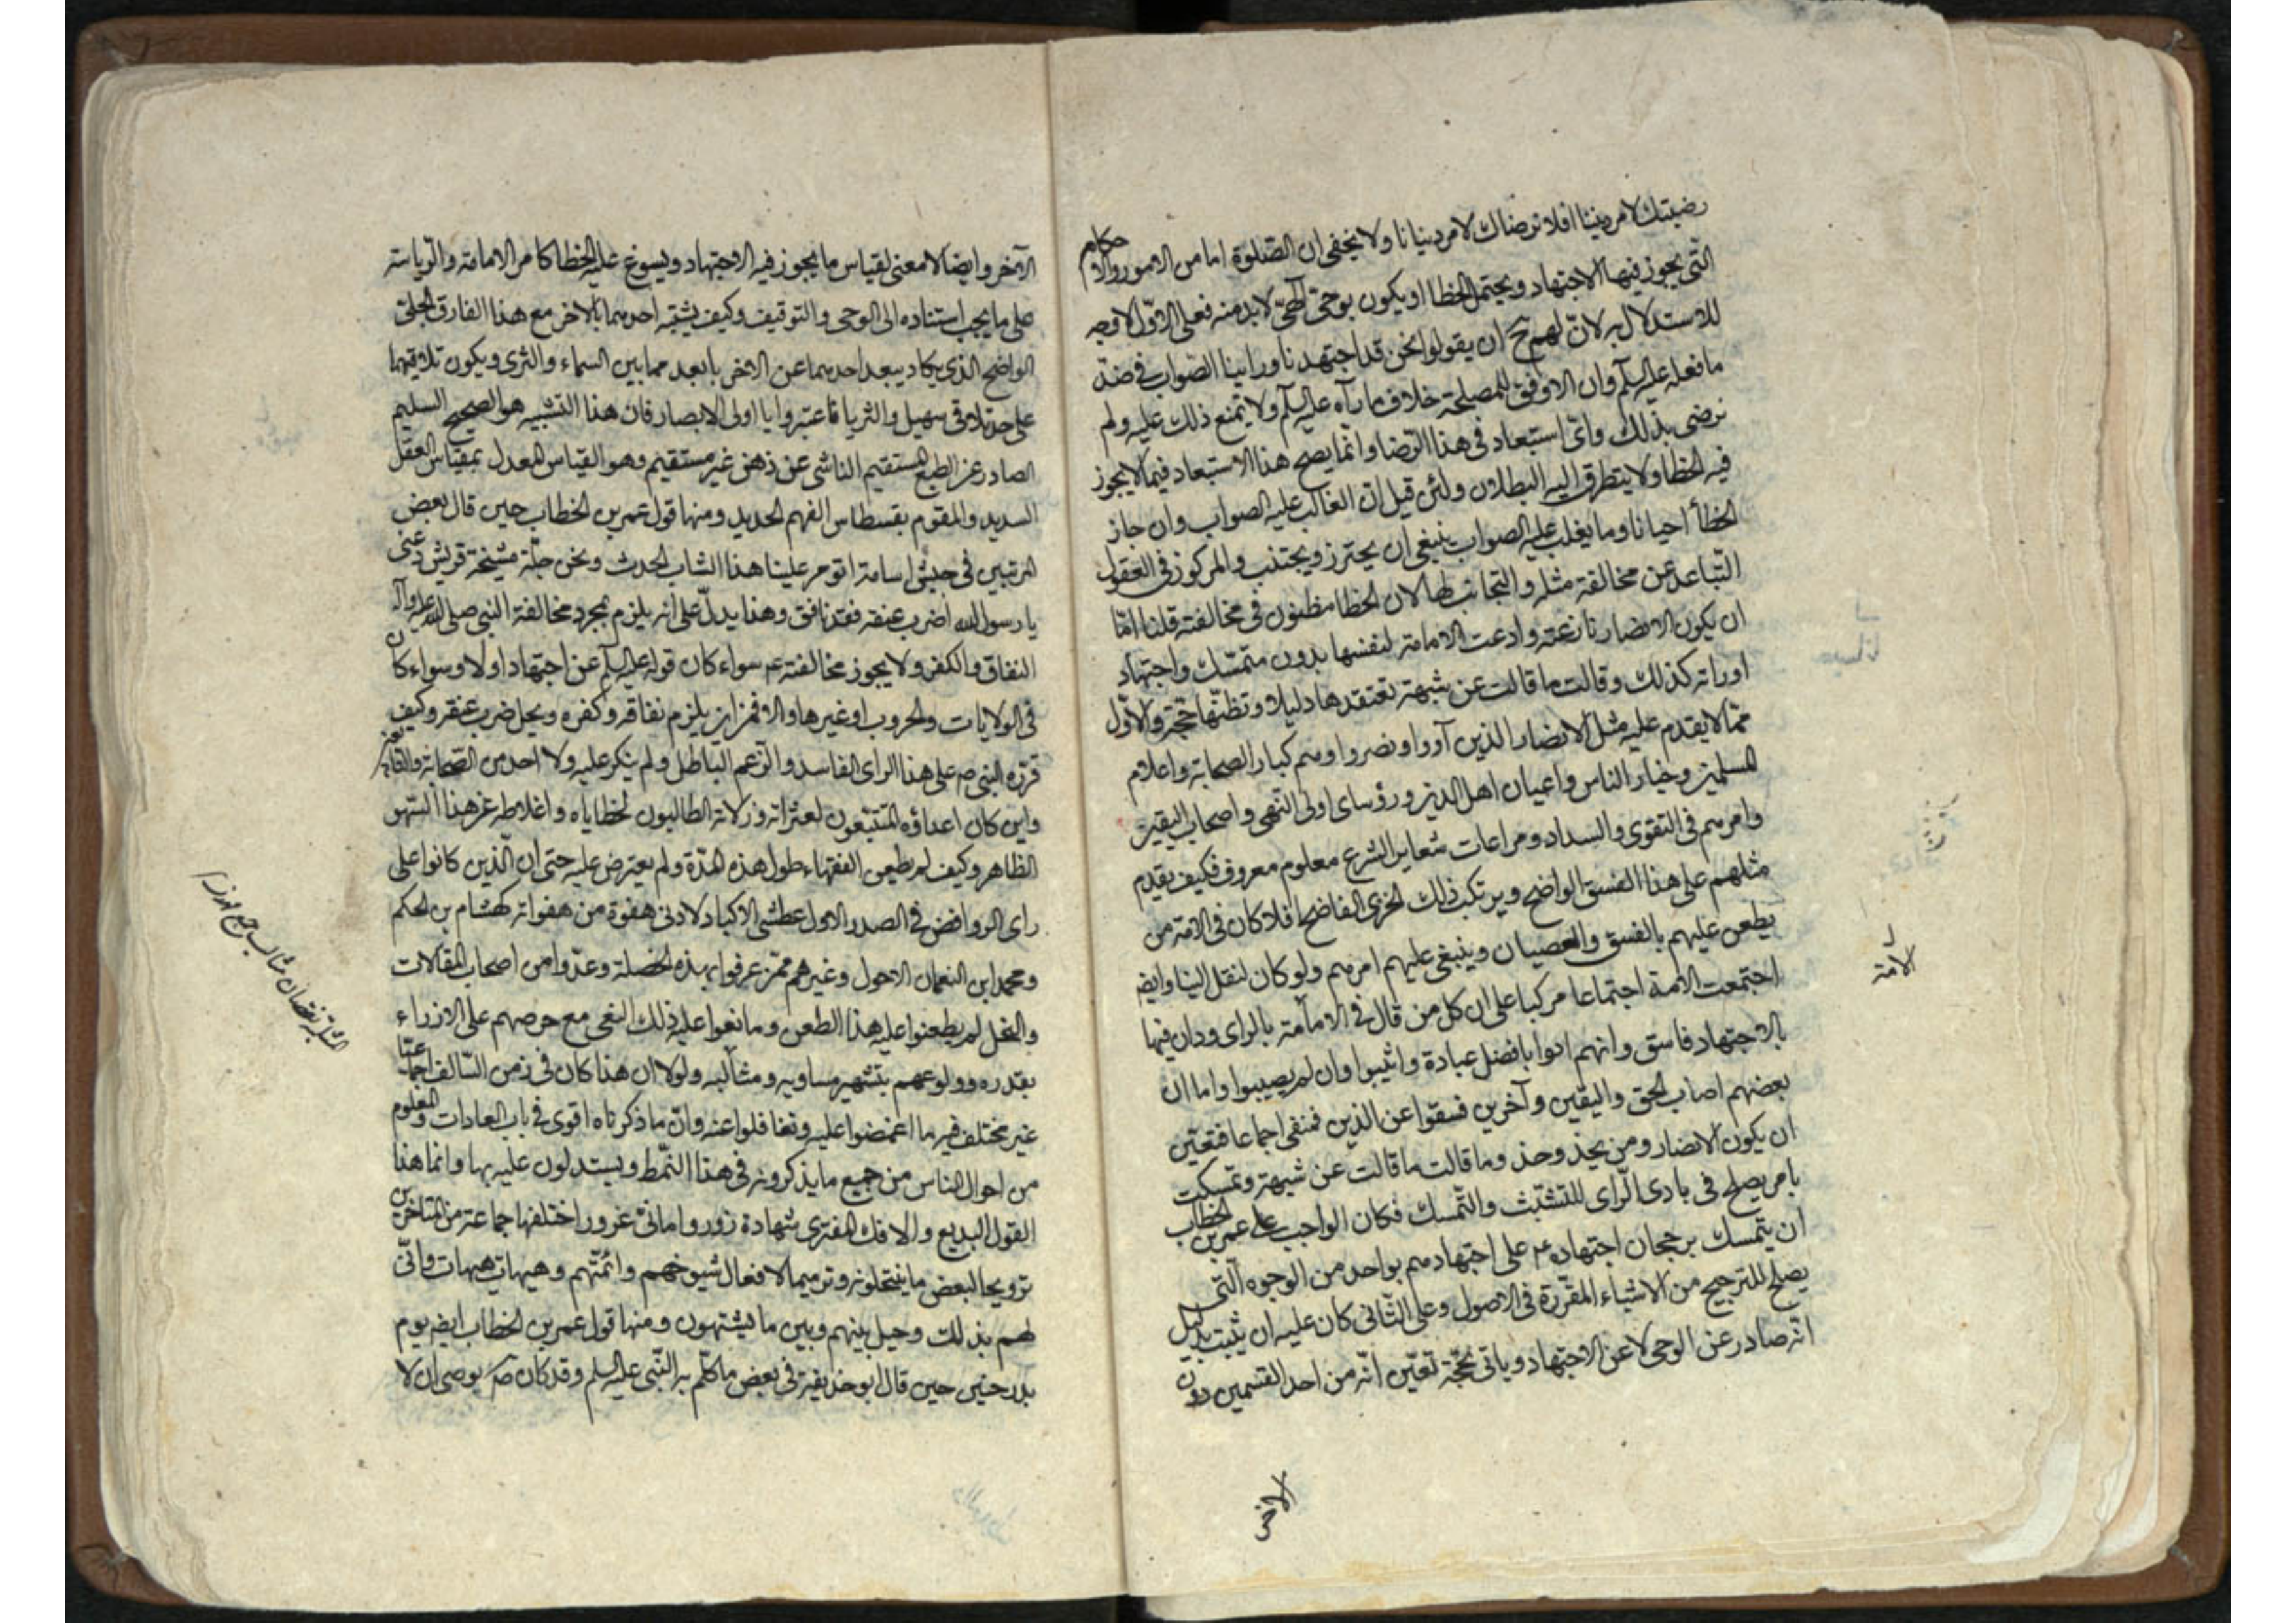 رضيتك لامر ديننا افلا نرضاك لامر دنيانا ولا يخفى ان الصلوة اما من الامور والاحكام
التى يجوز فيها الاجتهاد ويحتمل الخطا او يكون بوحى الهى لا بد منه فعلى الاول لا وجه
للاستدلال به لان لهم ح ان يقولوا نحن قد اجتهدنا وراينا الصواب فى ضد
ما فعله عليه السلم وان الاوفق للمصلحة خلاف ما رآه عليه السلم ولا يمنع ذلك عليه ولم
نرضى بذلك واى استبعاد فى هذا الرضا وانما يصح هذا الاستبعاد فيما لا يجوز
فيه الخطا ولا يتطرق اليه البطلان ولئن قيل ان الغالب عليه الصواب وان جاز
الخطأ احيانا وما يغلب عليه الصواب ينبغى ان يحترز ويجتنب والمركوز فى العقول
التباعد عن مخالفة مثله والتجانب لها لان الخطا مظنون فى مخالفته قلنا اما
ان يكون الانصار نازعته وادعت الامامة لنفسها بدون متمسك واجتهاد
او رأته كذلك وقالت ما قالت عن شبهة تعتقدها دليلا وتظنها حجة والاول
مما لا يقدم عليه مثل الانصار الذين آووا ونصروا وهم كبار الصحابة واعلام
المسلمين وخيار الناس واعيان اهل الدين ورؤساى اولى النهى واصحاب اليقين
وامرهم فى التقوى والسداد ومراعات شعاير الشرع معلوم معروف فكيف يقدم
مثلهم على هذا الفسق الواضح ويرتكب ذلك الخزى الفاضح افلا كان فى الامة من
يطعن عليهم بالفسق والعصيان وينبغى عليهم امرهم ولو كان لنقل الينا وايضا
اجتمعت الائمة اجتماعا مركبا على ان كل من قال فى الامامة بالراى ودان فيها
بالاجتهاد فاسق وانهم اتوا بافضل عبادة واثيبوا وان لم يصيبوا واما ان
بعضهم اصاب الحق واليقين وآخرين فسقوا عن الدين فمنفى اجماعا فتعين
ان يكون الانصار ومن يحذ وحذ وما قالت ما قالت عن شبهة وتمسكت
بامر يصلح فى بادى الراى للتشبث والتمسك فكان الواجب على عمر بن الخطاب
ان يتمسك برجحان اجتهاده ع على اجتهادهم بواحد من الوجوه التى
يصلح للترجيح من الاشياء المقررة فى الاصول وعلى الثانى كان عليه ان يثبت بدليل
انه صادر عن الوحى لا عن الاجتهاد وياتى بحجة تعين انه من احد القسمين دون
الاخر
الامة
الآخر وايضا لا معنى لقياس ما يجوز فيه الاجتهاد ويسوغ عليه الخطا كامر الامامة والرياسة
على ما يجب استناده الى الوحى والتوقيف وكيف يشبه احدهما بالاخر مع هذا الفارق الجلى
الواضح الذى يكاد يبعد احدهما عن الاخر بابعد مما بين السماء والثرى ويكون تلاقيهما
على حد تلاقى سهيل والثريا فاعتبروا يا اولى الابصار فان هذا التشبيه هو الصحيح السليم
الصادر عن الطبع المستقيم الناشى عن ذهن غير مستقيم وهو القياس المعدل بمقياس العقل
السديد والمقوم بقسطاس الفهم الحديد ومنها قول عمر بن الخطاب حين قال بعض
المرتبين فى جيش اسامة اتومر علينا هذا الشاب الحدث ونحن جلة مشيخة قريش دعنى
يا رسول الله اضرب عنقه فقد نافق وهذا يدل على انه يلزم بمجرد مخالفة النبى صلى الله عليه وآله
النفاق والكفر ولا يجوز مخالفته ع سواء كان قوله عليه السلم عن اجتهاد اولا وسواء كان
فى الولايات والحروب او غيرها والا فمن اين يلزم نفاقه وكفره ويحل ضرب عنقه وكيف
قرره النبى ص على هذا الراى الفاسد والزعم الباطل ولم ينكر عليه ولا احد من الصحابة والتابعين
واين كان اعداؤه المتتبعون لعثراته وزلاته الطالبون لخطاياه واغلاطه عن هذا السهو
الظاهر وكيف لم يطعن الفقهاء طول هذه المدة ولم يعترض عليه حتى ان الذين كانوا على
راى الروافض فى الصدر الاول عطشى الاكباد لادنى هفوة من هفواته كهشام بن الحكم
ومحمد ابن النعمان الاحول وغيرهم ممن عرفوا بهذه الخصلة وعدوا من اصحاب المقالات
والنحل لم يطعنوا عليه هذا الطعن وما نعوا عليه ذلك النعى مع حرصهم على الازراء
بقدره وولوعهم بتشهير مساويه ومثالبه ولولا ان هذا كان فى زمن السالف اجماعنا
غير مختلف فيه ما اغمضوا عليه وتغافلوا عنه وان ما ذكرناه اقوى فى باب العادات والمعلوم
من احوال الناس من جميع ما يذكرونه فى هذا النمط ويستدلون عليه بها وانما هذا
القول البديع والافك المفترى شهادة زور وامانى غرور اختلقها جماعة من المتاخرين
ترويحا لبعض ما ينتحلونه وترميما لافعال شيوخهم وائمتهم وهيهات هيهات وانى
لهم بذلك وحيل بينهم وبين ما يشتهون ومنها قول عمر بن الخطاب ايضا يوم
بدر حنين حين قال ابو حذيفة فى بعض ما كلم به النبى عليه السلم وقد كان ص يوصى ان لا